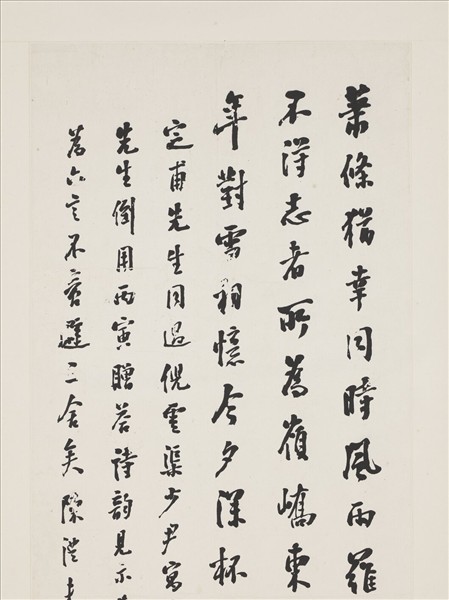 蕭條猶幸同時風雨羅
不得志者所為嶺嶠東
年對雪相憶今夕深杯
定甫先生同過倪雲渠少尹寓
先生倒用丙寅贈答詩韵見示
為六言不啻避三舍矣陳澧